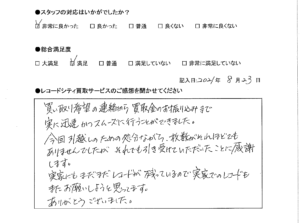 ●スタッフの対応はいかがでしたか？
☑非常に良かった □良かった □普通 □良くない □非常に良くない
●総合満足度
□大満足 ☑満足 □普通 □満足していない □非常に満足していない
記入日:2021年 8月23日
●レコードシティ買取サービスのご感想を聞かせてください
買い取り希望の連絡から買取金のお振り込みまで
実に迅速かつスムーズに行うことができました。
今回引越しのための処分ながら、枚数がそれほどでも
ありませんでしたが それでも引き受けていただいたことに感謝
します。
実家にもまだまだレコードが残っているので実家でのレコードも
またお願いしようと思ってます。
ありがとうございました。